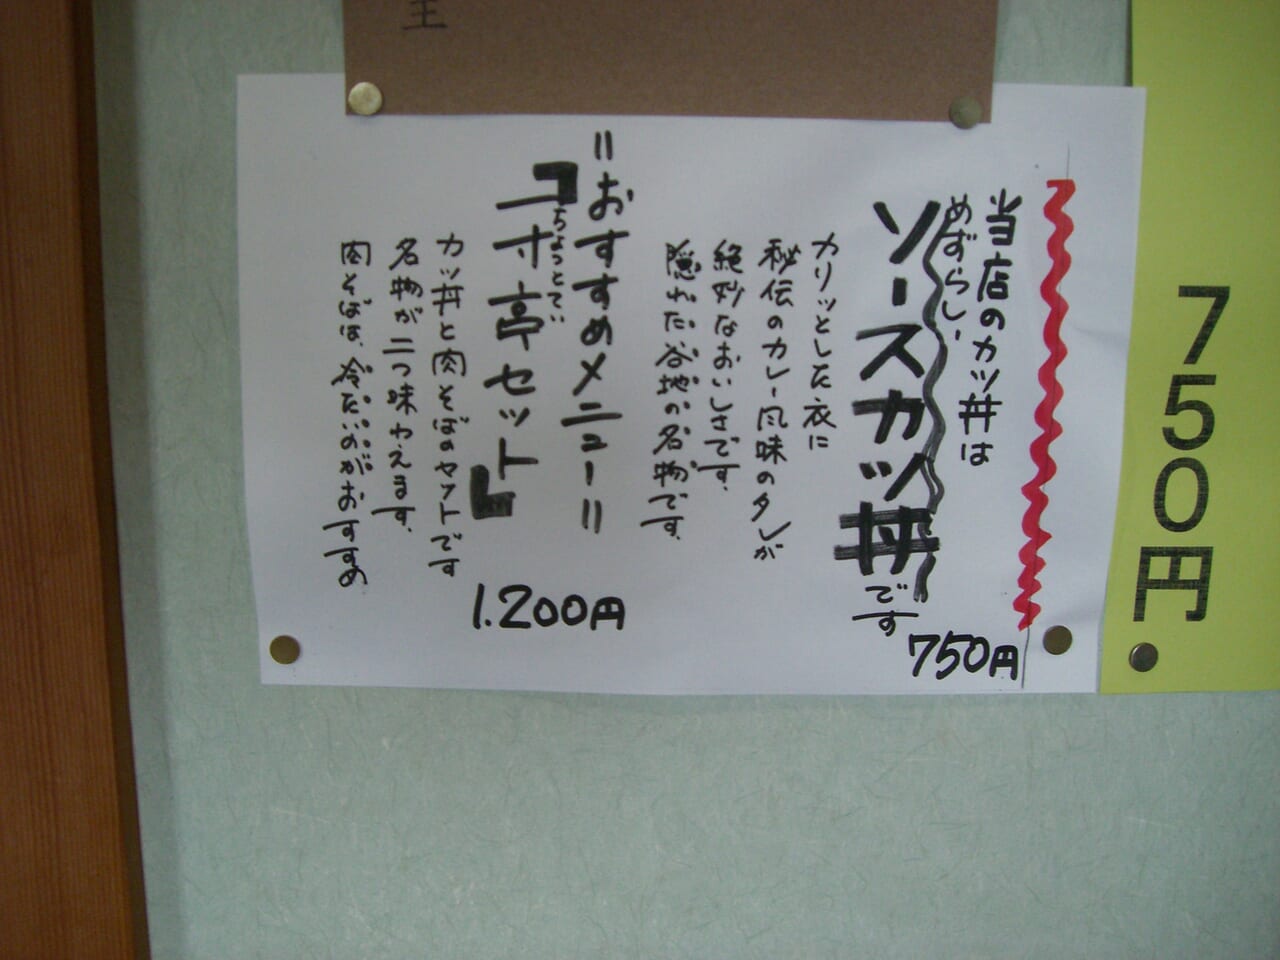 750円
当店のカツ丼は
めずらしい
ソースカツ丼です
750円
カリッとした衣に
秘伝のカレー風味のタレが
絶妙なおいしさです。
隠れた谷地の名物です。
=おすすめメニュー=
『一寸亭セット』
ちょっとてい
1.200円
カツ丼と肉そばのセットです
名物が二つ味わえます。
肉そばは、冷たいのがおすすめ